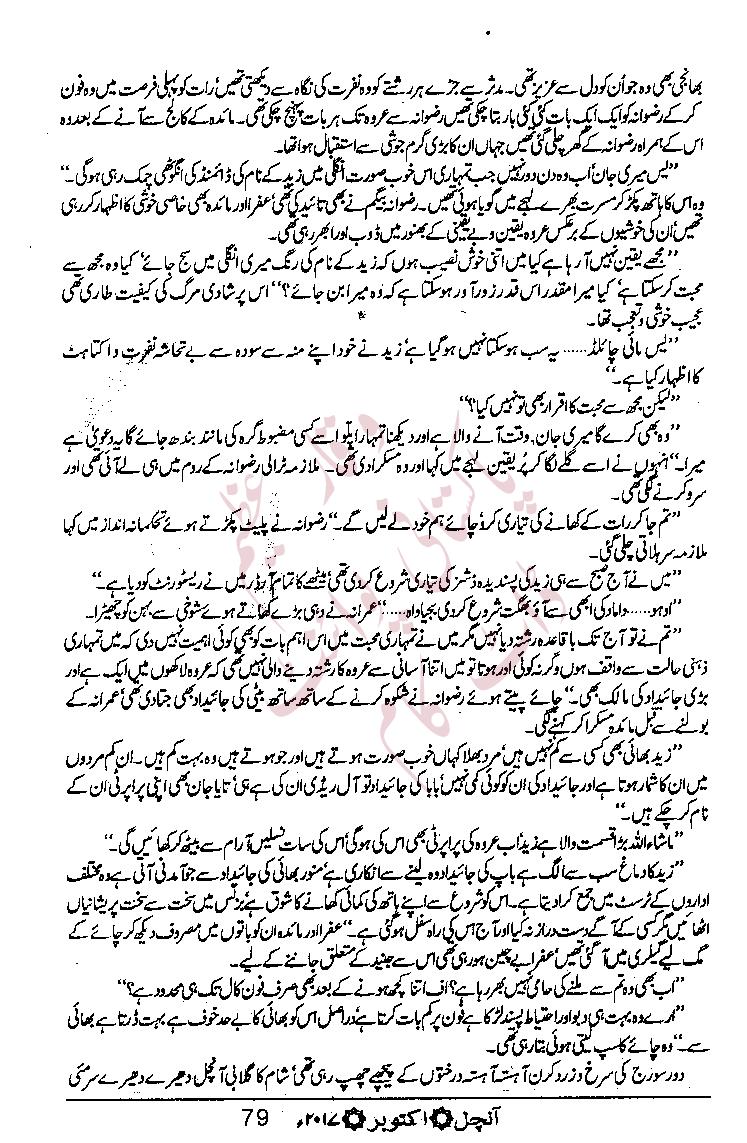 بھانجی بھی وہ جو اُن کو دل سے عزیز تھی۔ مدثر سے جڑے ہر رشتے کو وہ نفرت کی نگاہ سے دیکھتی تھیں رات کو پہلی فرصت میں وہ فون
کر کے رضوانہ کو ایک ایک بات کئی کئی بار بتا چکی تھیں رضوانہ سے عروہ تک ہر بات پہنچ چکی تھی۔ مائدہ کے کالج سے آنے کے بعد وہ
اس کے ہمراہ رضوانہ کے گھر چلی گئی تھیں جہاں ان کا بڑی گرم جوشی سے استقبال ہوا تھا۔
”بس میری جان اب وہ دن دور نہیں جب تمہاری اس خوب صورت انگلی میں زید کے نام کی ڈائمنڈ کی انگوٹھی چمک رہی ہوگی۔“
وہ اس کا ہاتھ پکڑ کر مسرت بھرے لہجے میں گویا ہوئی تھیں۔ رضوانہ بیگم نے بھی تائید کی تھی عفرا اور مائدہ بھی خاصی خوشی کا اظہار کر رہی
تھیں اُن کی خوشیوں کے برعکس عروہ یقین و بے یقینی کے بھنور میں ڈوب اور ابھر رہی تھی۔
”مجھے یقین نہیں آ رہا ہے کیا میں اتنی خوش نصیب ہوں کہ زید کے نام کی رنگ میری انگلی میں سج جائے کیا وہ مجھ سے
محبت کر سکتا ہے کیا میرا مقدر اس قدر زور آور ہو سکتا ہے کہ وہ میرا بن جائے؟“ اس پر شادی مرگ کی کیفیت طاری تھی
عجیب خوشی و تعجب تھا۔
”یس مائی چائلڈ...... یہ سب ہو سکتا نہیں ہو گیا ہے زید نے خود اپنے منہ سے سودہ سے بے تحاشہ نفرت و اکتاہٹ
کا اظہار کیا ہے۔“
”لیکن مجھ سے محبت کا اقرار بھی تو نہیں کیا؟“
”وہ بھی کرے گا میری جان، وقت آنے والا ہے اور دیکھنا تمہارا پلو اسے کسی مضبوط گرہ کی مانند بندھ جائے گا یہ دعویٰ ہے
میرا۔“ انہوں نے اسے گلے لگا کر پُر یقین لہجے میں کہا اور وہ مسکرا دی تھی۔ ملازمہ ٹرالی رضوانہ کے روم میں ہی لے آئی تھی اور
سرو کرنے لگی تھی۔
”تم جا کر رات کے کھانے کی تیاری کرو چائے ہم خود لے لیں گے۔“ رضوانہ نے پلیٹ پکڑتے ہوئے تحکمانہ انداز میں کہا
ملازمہ سر ہلاتی چلی گئی۔
”میں نے آج صبح سے ہی زید کی پسندیدہ ڈشز کی تیاری شروع کر دی تھی میٹھے کا تمام آرڈر میں نے ریسٹورنٹ کو دیا ہے۔“
”اوہو...... داماد کی ابھی سے آؤ بھگت شروع کر دی بجیا واہ......“ عمرانہ نے دہی بڑے کھاتے ہوئے شوخی سے بہن کو چھیڑا۔
”تم نے تو آج تک باقاعدہ رشتہ دیا نہیں مگر میں نے تمہاری محبت میں اس اہم بات کو بھی کوئی اہمیت نہیں دی کہ میں تمہاری
ذہنی حالت سے واقف ہوں وگرنہ کوئی اور ہوتا تو میں اتنا آسانی سے عروہ کا رشتہ دینے والی نہیں تھی کہ عروہ لاکھوں میں ایک ہے اور
بڑی جائیداد کی مالک بھی۔“ چائے پیتے ہوئے رضوانہ نے شکوہ کرنے کے ساتھ ساتھ بیٹی کی جائیداد بھی جتا دی تھی عمرانہ کے
بولنے سے قبل مائدہ مسکرا کر کہنے لگی۔
”زید بھائی بھی کسی سے کم نہیں ہیں مرد بھلا کہاں خوب صورت ہوتے ہیں اور جو ہوتے ہیں وہ بہت کم ہیں۔ ان کم مردوں
میں ان کا شمار ہوتا ہے اور جائیداد کی ان کو کوئی کمی نہیں بابا کی جائیداد تو آل ریڈی ان کی ہے ہی تایا جان بھی اپنی پراپرٹی ان کے
نام کر چکے ہیں۔“
”ماشاء اللہ بڑا قسمت والا ہے زید اب عروہ کی پراپرٹی بھی اس کی ہوگی اس کی سات نسلیں آرام سے بیٹھ کر کھائیں گی۔“
”زید کا دماغ سب سے الگ ہے باپ کی جائیداد وہ لینے سے انکاری ہے منور بھائی کی جائیداد سے جو آمدنی آتی ہے وہ مختلف
اداروں کے ٹرسٹ میں جمع کرا دیتا ہے۔ اس کو شروع سے اپنے ہاتھ کی کمائی کھانے کا شوق ہے بزنس میں سخت سے سخت پریشانیاں
اٹھائیں مگر کسی کے آگے دست دراز نہ کیا اور آج اس کی راہ سہل ہو گئی ہے۔“ عفرا اور مائدہ ان کو باتوں میں مصروف دیکھ کر چائے کے
مگ لیے گیلری میں آ گئی تھیں عفرا بے چین ہو رہی تھی اس سے جنید کے متعلق جاننے کے لیے۔
”اب بھی وہ تم سے ملنے کی حامی نہیں بھر رہا ہے؟ اف اتنا کچھ ہونے کے بعد بھی صرف فون کال تک ہی محدود ہے؟“
”ارے وہ بہت ہی دبو اور احتیاط پسند لڑکا ہے فون پر کم بات کرتا ہے دراصل اس کو بھائی کا بے حد خوف ہے بہت ڈرتا ہے بھائی
سے۔“ وہ چائے کا سپ لیتی ہوئی بتا رہی تھی۔
دور سورج کی سرخ و زرد کرن آہستہ آہستہ درختوں کے پیچھے چھپ رہی تھی شام کا گلابی آنچل دھیرے دھیرے سرمئی
آنچل اکتوبر ۲۰۱۷ء 79